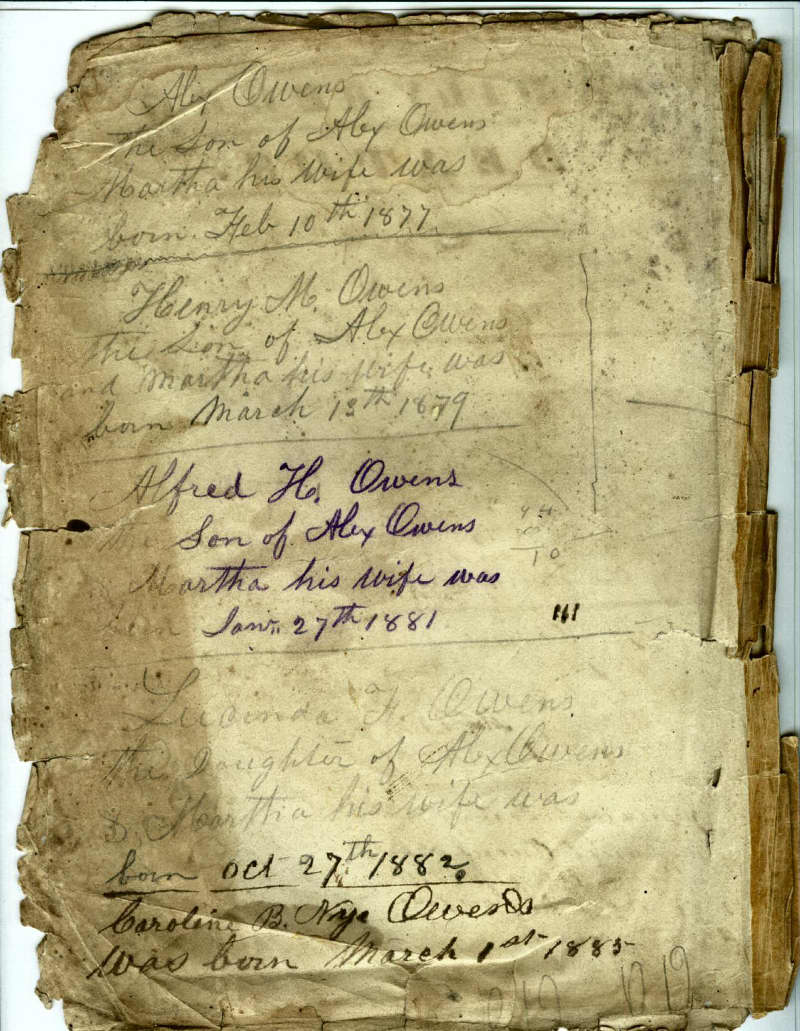 Alex Owens
the Son of Alex Owens
Martha his wife was
born Feb 10th 1877
Henry M. Owens
the Son of Alex Owens
and Martha his wife was
born March 13th 1879
Alfred H. Owens
the Son of Alex Owens
Martha his wife was
born Jan. 27th 1881
Lucinda F. Owens
the Daughter of Alex Owens
& Martha his wife was
born Oct 27th 1882
Caroline B. Nye Owens
was born March 1st 1885